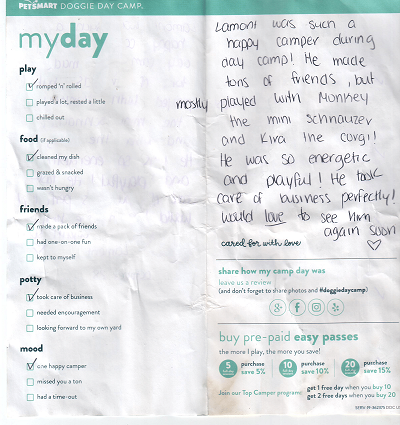 PETSMART DOGGIE DAY CAMP.
myday
play
romped 'n' rolled
played a lot, rested a little
chilled out
food (if applicable)
cleaned my dish
grazed & snacked
wasn't hungry
friends
made a pack of friends
had one-on-one fun
kept to myself
potty
took care of business
needed encouragement
looking forward to my own yard
mood
one happy camper
missed you a ton
had a time-out
Lamont was such a
happy camper during
day camp! He made
tons of friends, but
mostly played with Monkey
the mini schnauzer
and Kira the corgi!
He was so energetic
and playful! He took
care of business perfectly!
Would love to see him
again soon
cared for with love
share how my camp day was
leave us a review
(and don't forget to share photos and #doggiedaycamp)
buy pre-paid easy passes
the more I play, the more you save!
5 purchase save 5%
10 purchase save 10%
20 purchase save 15%
Join our Top Camper program: get 1 free day when you buy 10
get 2 free days when you buy 20